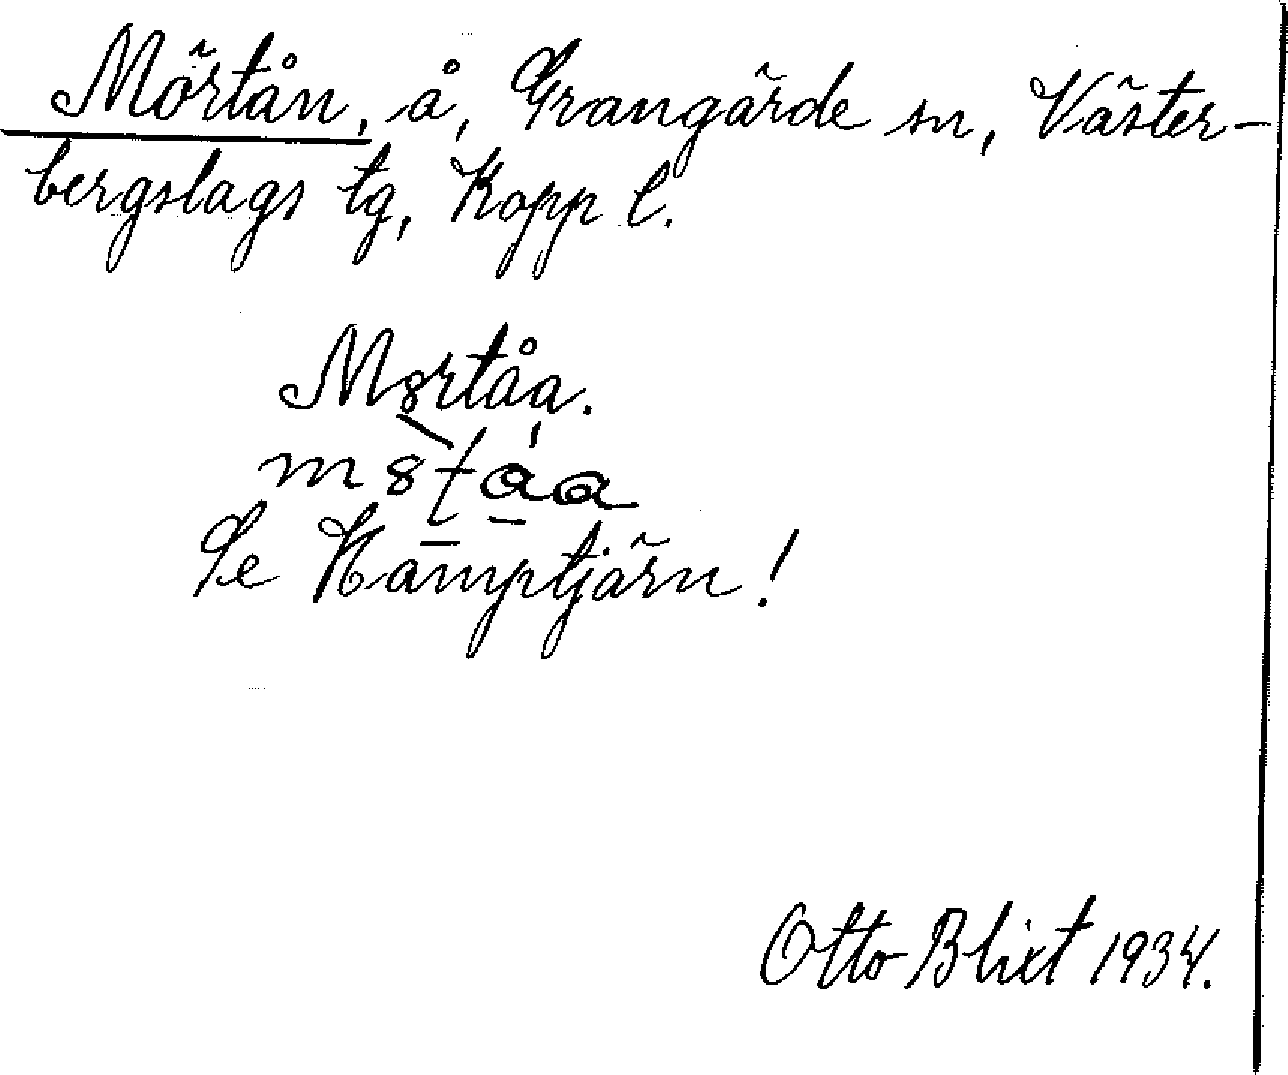 Mörtån, å, Grangärde sn, Väster-
bergslags tg, Kopp l.
M8rtåa.
Se Kamptjärn!
Otto Blixt 1934.